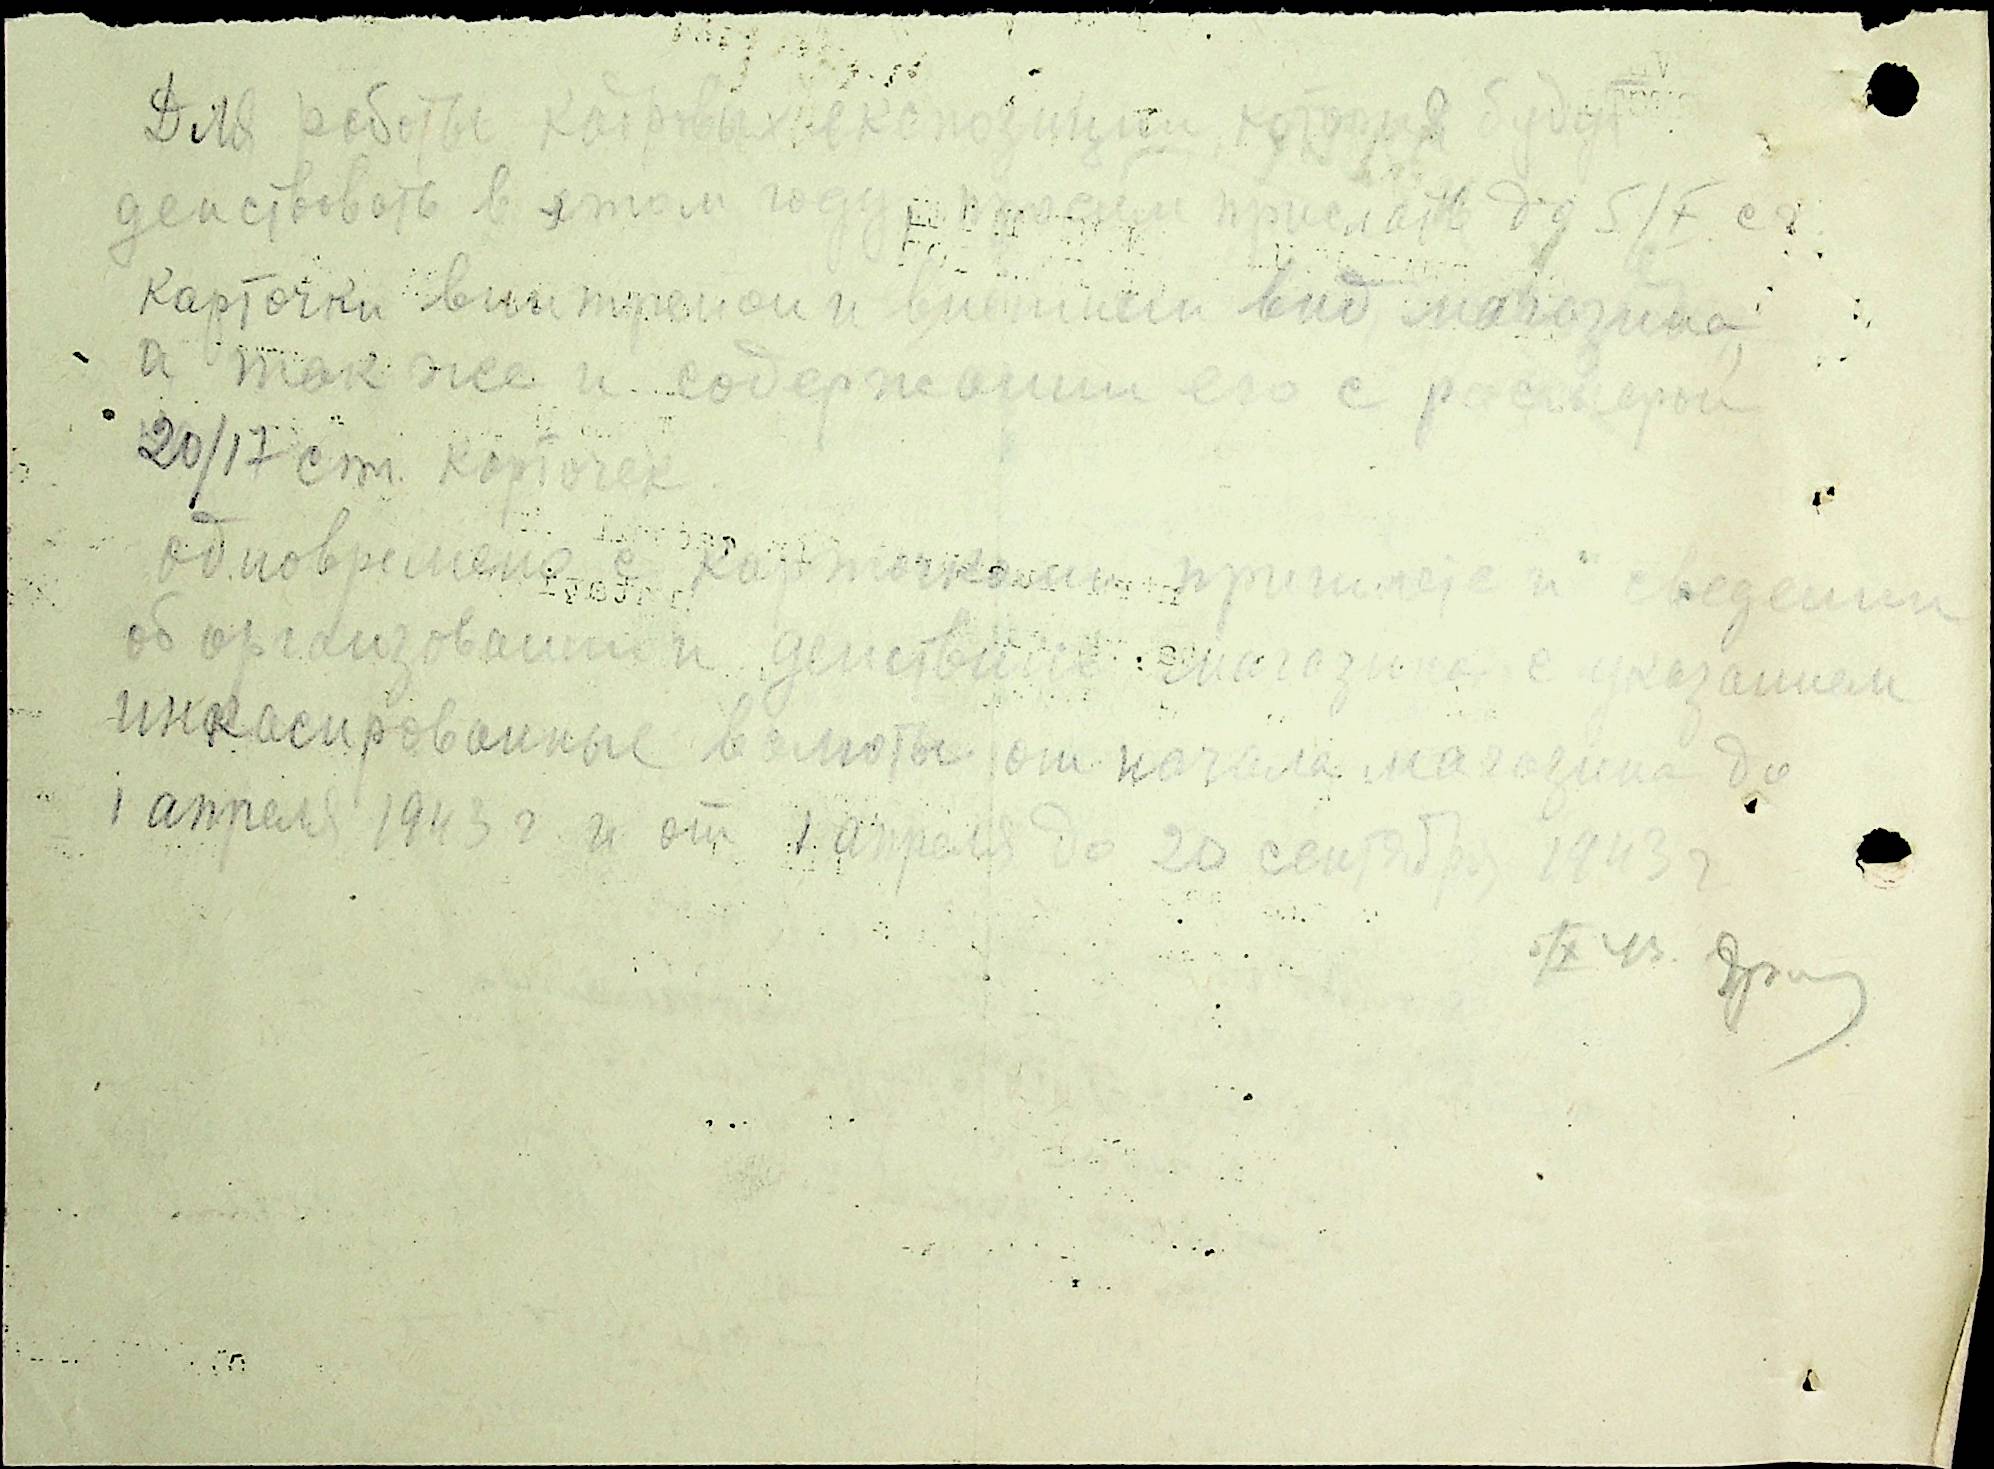 Для работы кадровых експозиции которая будут
действовать в этом году, просим прислать до 5/X с г.
карточки внутреной и внешнеи вид магозина,
а так же и содержании его с расмерой
20/17 cm. карточек.
одновремено с карточками пришлете и сведении
об организовании и действии магозина с указанием
инкасированные валюты от начала магозина до
1 апреля 1943 г. и от 1 апреля до 20 сентября 1943 г
/X 43.